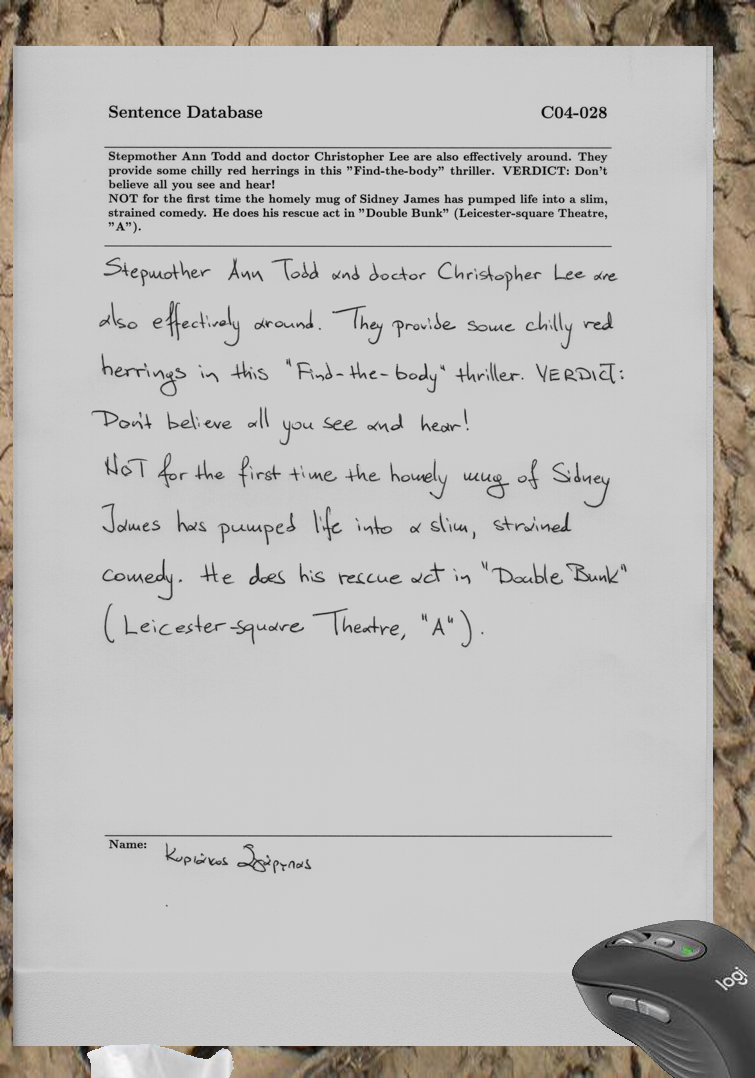 Sentence Database C04-028
Stepmother Ann Todd and doctor Christopher Lee are also effectively around. They
provide some chilly red herrings in this "Find-the-body" thriller. VERDICT: Don't
believe all you see and hear!
NOT for the first time the homely mug of Sidney James has pumped life into a slim,
strained comedy. He does his rescue act in "Double Bunk" (Leicester-square Theatre,
"A").
Stepmother Ann Todd and doctor Christopher Lee are
also effectively around. They provide some chilly red
herrings in this "Find-the-body" thriller. VERDICT:
Don't believe all you see and hear!
NOT for the first time the homely mug of Sidney
James has pumped life into a slim, strained
comedy. He does his rescue act in "Double Bunk"
(Leicester-square Theatre, "A").
Name: Κυριάκος
logi